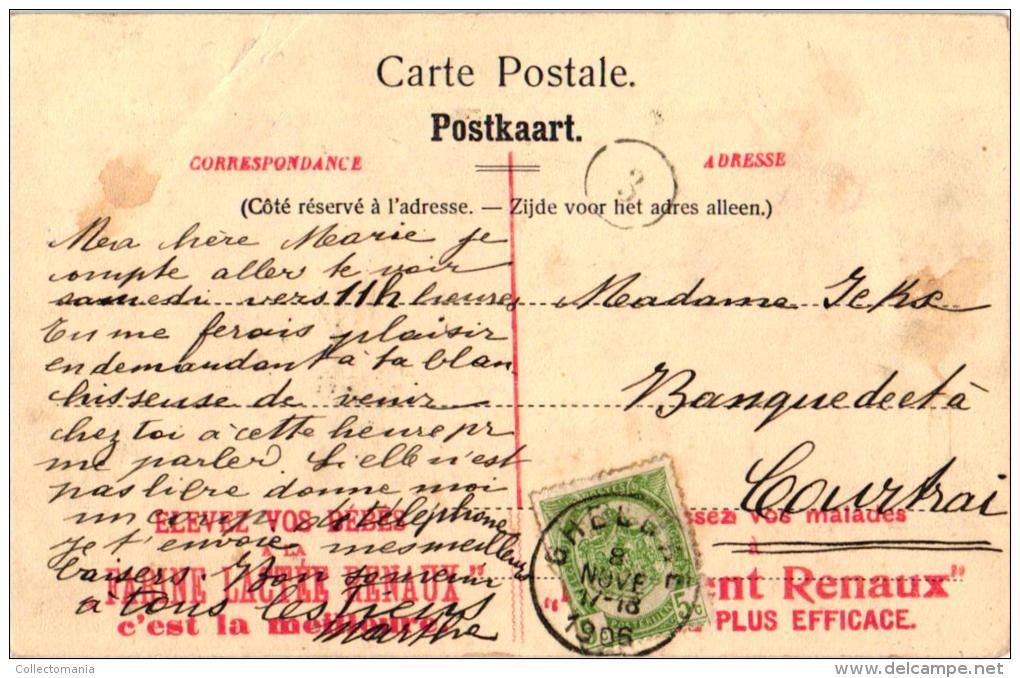 Carte Postale.
Postkaart.
CORRESPONDANCE
ADRESSE
3
(Côté réservé à l'adresse. — Zijde voor het adres alleen.)
Ma chère Marie je
compte aller te voir
samedi vers 11h heures
Tu me ferais plaisir
en demandant à ta blan
chisseuse de venir
chez toi à cette heure pr
me parler. Si elle n'est
pas libre donne moi
un coup de téléphone
je t'envoie mes meilleurs
baisers. Bon souvenir
à tous les tiens
Marthe
Madame
Banque de
Courtrai
ELEVEZ VOS BÉBÉS
À LA
FARINE LACTÉE RENAUX"
c'est la meilleure
ssez vos malades
à
ent Renaux"
PLUS EFFICACE.
8
NOVE
17-18
1906
5c
Collectomania
delcampe.net